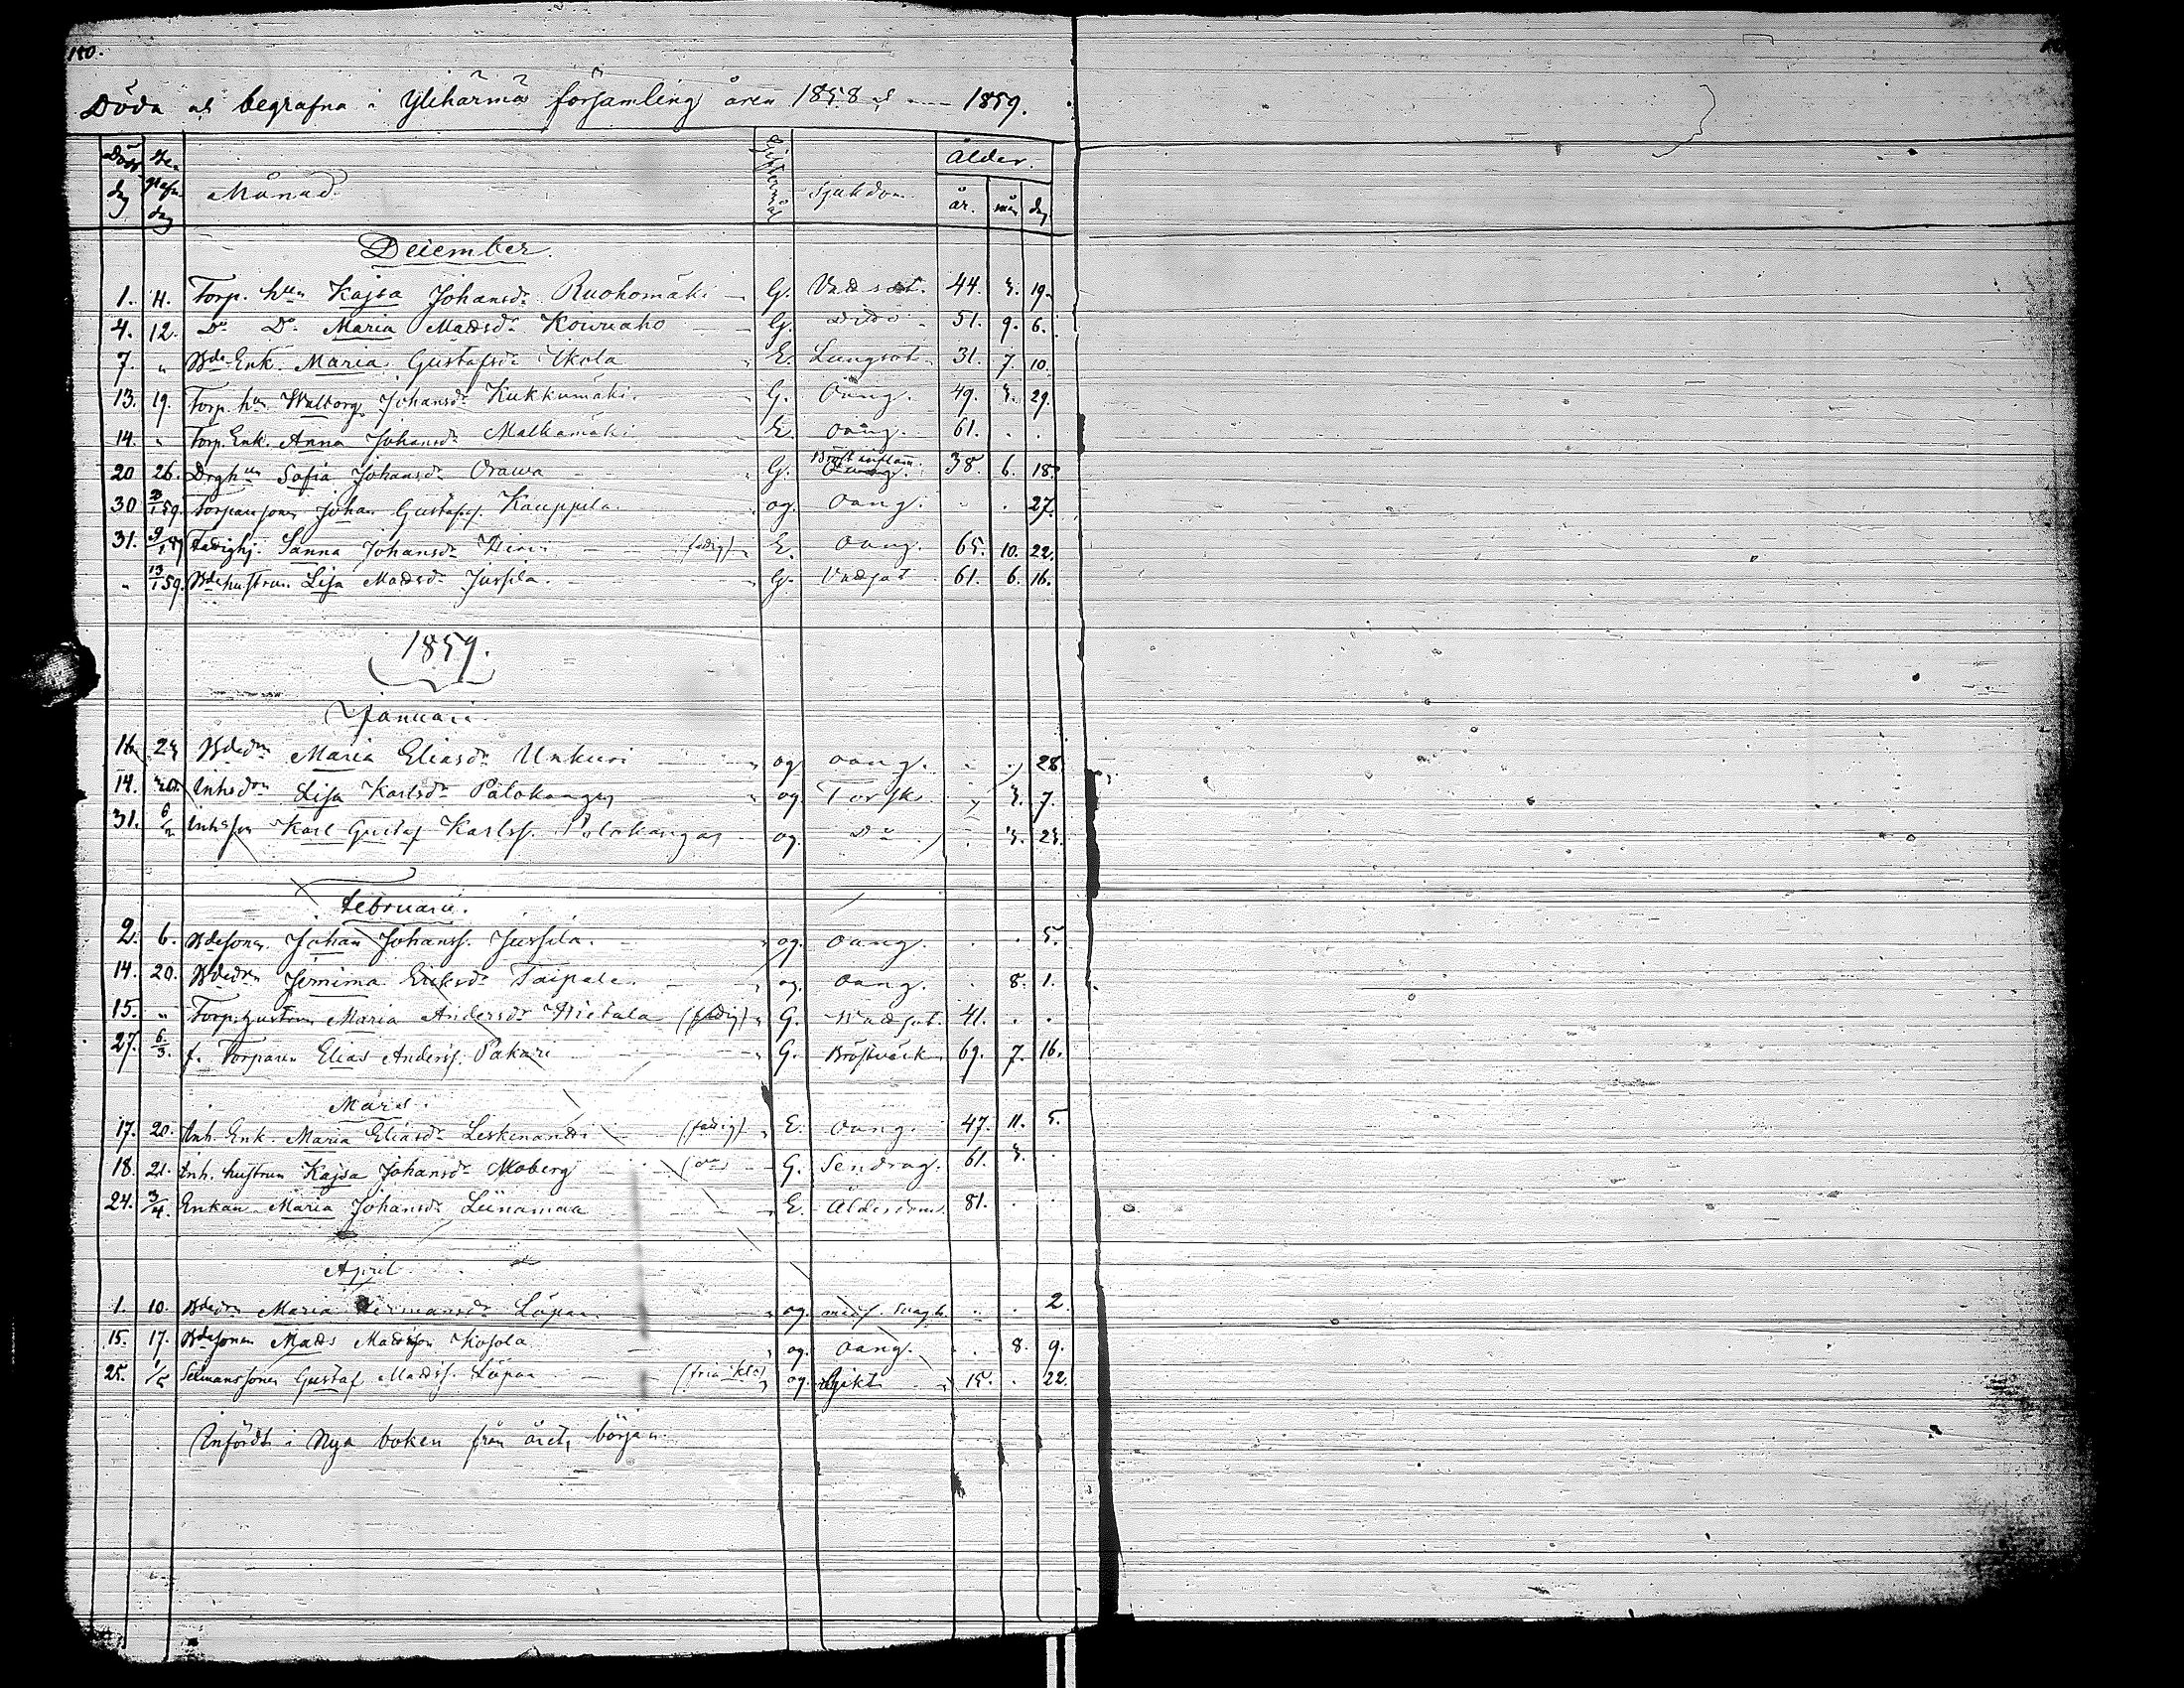 180.
Döda och begrafna i Ylihärmä församling åren 1858 och 1859.
Död dag Begrafn. dag Månad Sjukdom Ålder. år. mån dag
December.
1. 11. Torp. hun Kajsa Johansdr Ruohomäki G. Vattusot. 44. 3. 19.
4. 12. Do Do Maria Mattsdr Kouriaho G. Ditto 51. 9. 6.
7. " Bde Enk. Maria Gustafsdr Ekola E. Lungsot 31. 7. 10.
13. 19. Torp. hun Walborg Johansdr Kukkumäki. G. Oäng. 49. 3. 29.
14. " Torp. Enk. Anna Johansdr Malkamäki E. oäng. 61. . .
20 26. Drghun Sofia Johansdr Orawa G. Bröst inflam. 38. 6. 18.
30 2/1 59. Torparesonen Johan Gustafss. Kauppila og oäng. . . 27.
31. 9/1 59 Fattighj. Sanna Johansdr (fattig) E. oäng. 65. 10. 22.
" 13/1 59. Bdehustrun Lisa Mattsdr Jussila. G. Vattsot 61. 6. 16.
1859.
Januari.
16 23 Bdedrn Maria Eliasdr Unkuri og oäng. . . 28
18. 30. Inhsdrn Lisa Karlsdr Palokangas og Torsk. 3. 7.
31. 6/2 Inhsson Karl Gustaf Karlss. Palokangas og. Do . 3. 23.
Februari.
2. 6. Bdesonen Johan Johanss. Jussila. og. oäng. . . 5.
14. 20. Bdedrn Jemima Eriksdr Taipale. og. oäng. . 8. 1.
15. " Torp. hustrun Maria Andersdr Hietala (fattig) G. Wattsot. 41. . .
27. 6/3. f. Torparen Elias Anderss. Pakari G. Bröstvärk 69. 7. 16.
Mars.
17. 20. Inh. Enk. Maria Eliasdr Leskenantti (fattig) E. Oäng. 47. 11. 5.
18. 21. Inh. hustrun Kajsa Johansdr Moberg (do) G. Sendrag. 61. 3. .
24. 3/4. Enkan Maria Johansdr Liinamaa E. Ålderdom 81. . .
April
1. 10. Bdedrn Maria Hermansdr Löpar og. . . 2.
15. 17. Bdesonen Matts Mattsson Kosola og. oäng. . 8. 9.
25. 1/5 Gustaf Mattss. Löpar og. Gikt 15. . 22.
Infördt i Nya boken från årets början.